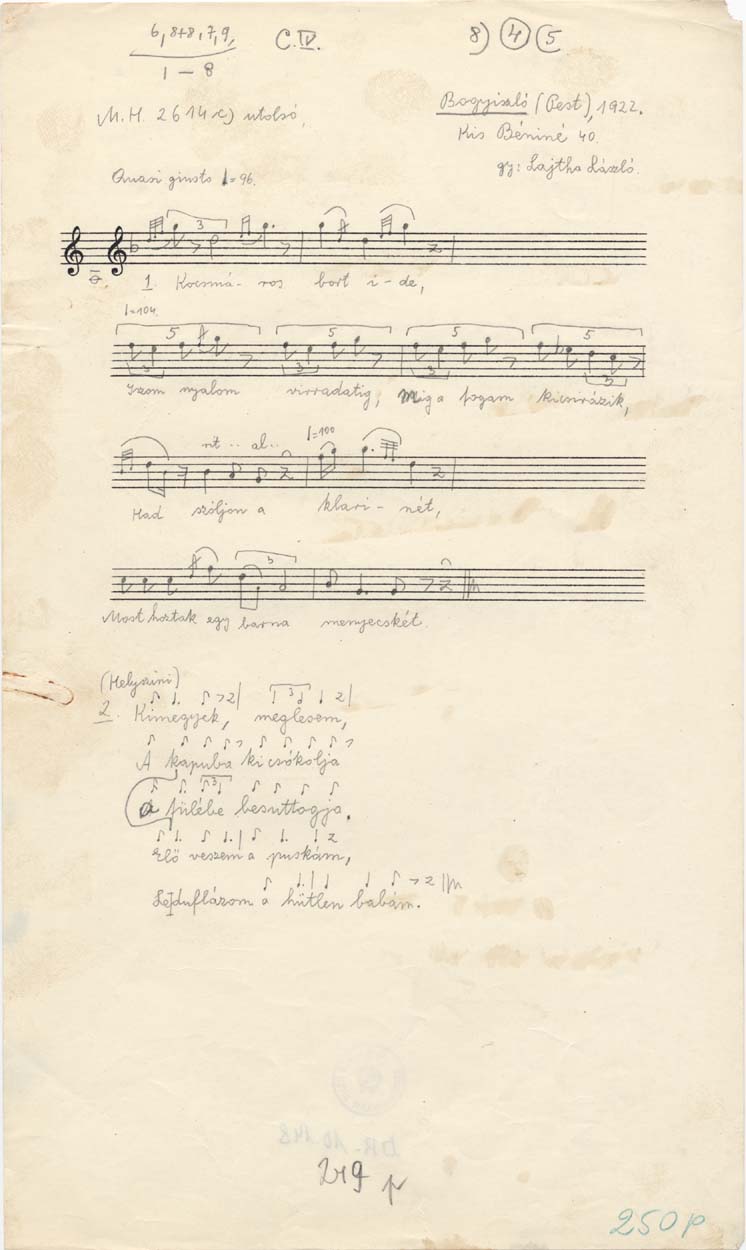 6, 8+8, 7, 9, C.IV. 8) 4 5
1 – 8
M.H. 2614 c) utolsó, Bogyiszló (Pest), 1922.
Kis Béniné 40.
gy: Lajtha László.
Quasi giusto ♩=96.
3
1. Kocsmá- ros bort i-de,
♩=104.
5 5 5 5
3 3 3 3
Iszom nyalom virradatig, Mig a fogam kicsirázik,
rit .. al.. ♩=100
Had szóljon a klari- nét,
3
Most hoztak egy barna menyecskét.
(Helyszini)
3
2. Kimegyek, meglesem,
A kapuba kicsókolja
3
a fülébe besuttogja.
Elő veszem a puskám,
Lejduflázom a hűtlen babám.
DR. 10.148
249 p
250p